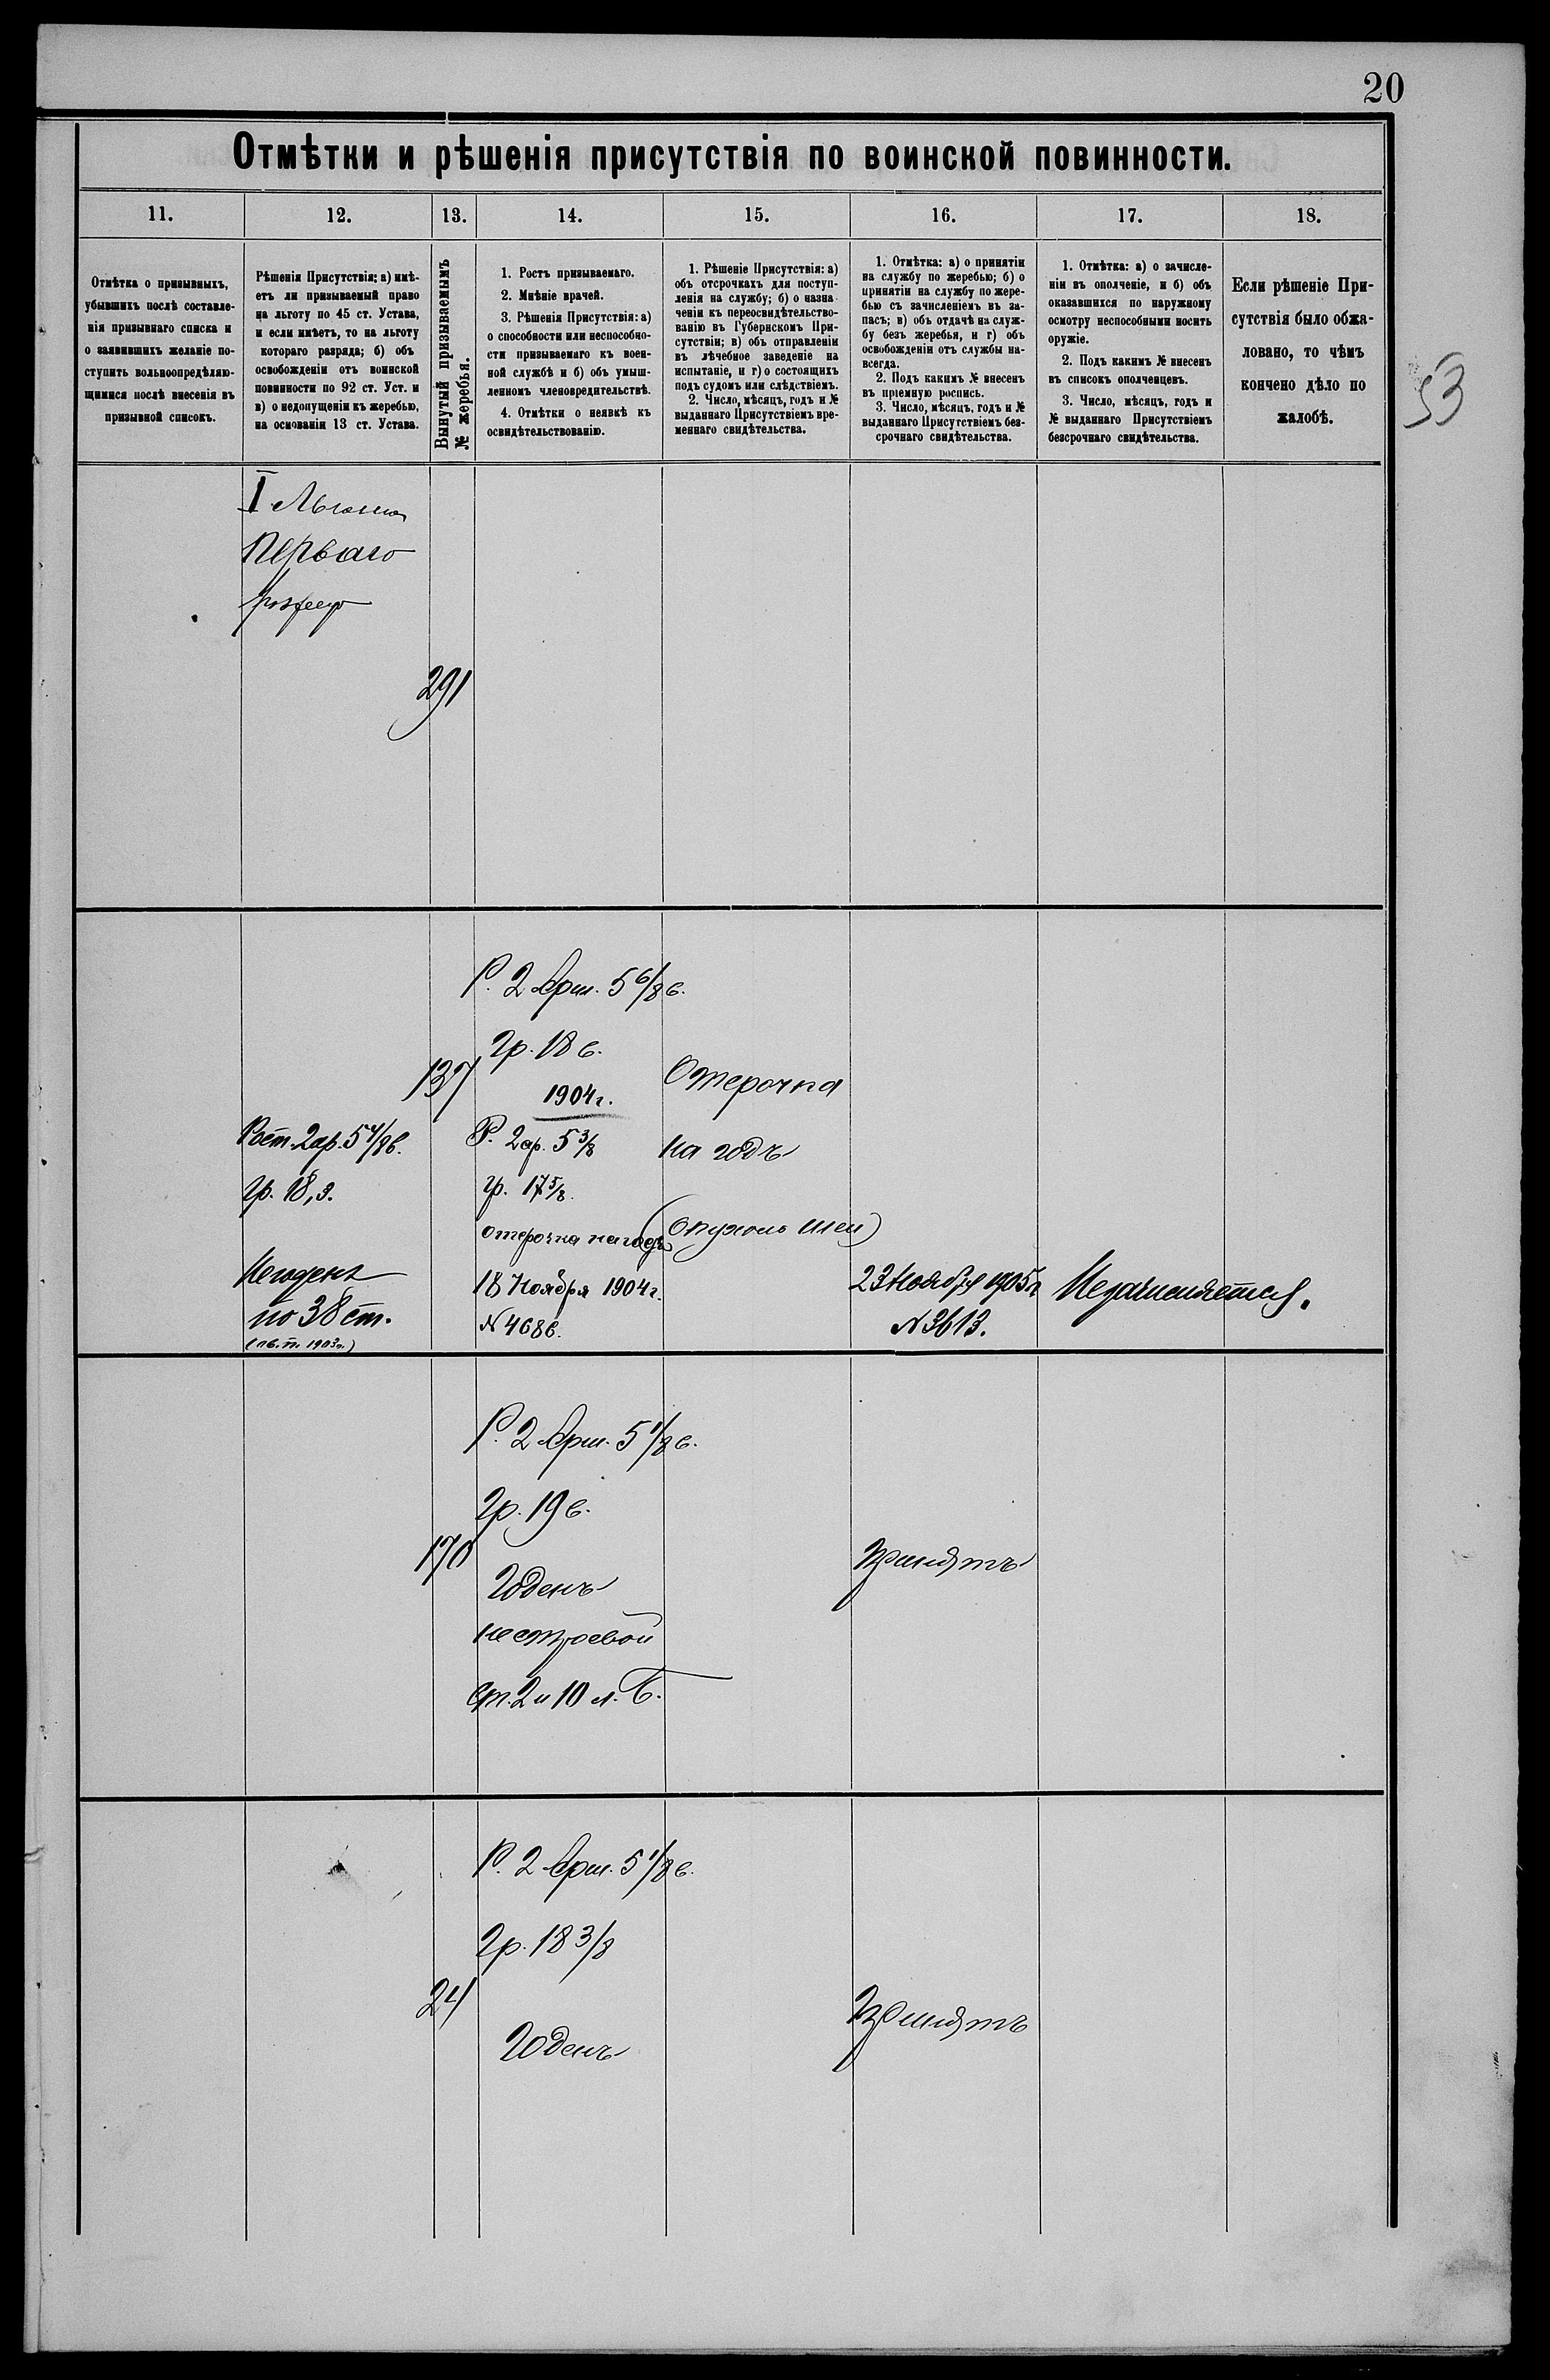 20
Отмѣтки и рѣшенія присутствія по воинской повинности.
11. 12. 13. 14. 15. 16. 17. 18.
Отмѣтка о призывныхъ,
убывшихъ послѣ составле-
нія призывнаго списка и
о заявившихъ желаніе по-
ступить вольноопредѣляю-
щимися послѣ внесенія въ
призывной списокъ.
Рѣшенія Присутствія: а) имѣ-
етъ ли призываемый право
на льготу по 45 ст. Устава,
и если имѣетъ, то на льготу
котораго разряда; б) объ
освобожденіи отъ воинской
повинности по 92 ст. Уст. и
в) о недопущеніи къ жеребью,
на основаніи 13 ст. Устава.
Вынутый призываемымъ
№ жеребья.
1. Ростъ призываемаго.
2. Мнѣніе врачей.
3. Рѣшенія Присутствія: а)
о способности или неспособно-
сти призываемаго къ воен-
ной службѣ и б) объ умыш-
ленномъ членовредительствѣ.
4. Отмѣтки о неявкѣ къ
освидѣтельствованію.
1. Рѣшеніе Присутствія: а)
объ отсрочкахъ для поступ-
ленія на службу; б) о назна-
ченіи къ переосвидѣтельство-
ванію въ Губернскомъ При-
сутствіи; в) объ отправленіи
въ лѣчебное заведеніе на
испытаніе, и г) о состоящихъ
подъ судомъ или слѣдствіемъ.
2. Число, мѣсяцъ, годъ и №
выданнаго Присутствіемъ вре-
меннаго свидѣтельства.
1. Отмѣтка: а) о принятіи
на службу по жеребью; б) о
принятіи на службу по жере-
бью съ зачисленіемъ въ за-
пасъ; в) объ отдачѣ на служ-
бу безъ жеребья, и г) объ
освобожденіи отъ службы на-
всегда.
2. Подъ какимъ № внесенъ
въ пріемную роспись.
3. Число, мѣсяцъ, годъ и №
выданнаго Присутствіемъ без-
срочнаго свидѣтельства.
1. Отмѣтка: а) о зачисле-
ніи въ ополченіе, и б) объ
оказавшихся по наружному
осмотру неспособными носить
оружіе.
2. Подъ какимъ № внесенъ
въ списокъ ополченцевъ.
3. Число, мѣсяцъ, годъ и
№ выданнаго Присутствіемъ
безсрочнаго свидѣтельства.
Если рѣшеніе При-
сутствія было обжа-
ловано, то чѣмъ
кончено дѣло по
жалобѣ.
53
I Льгота
Перваго
291
Рост. 2 ар. 5 4/8 в.
гр. 18,3.
Негоденъ
по 38 ст.
137
Р. 2 Арш. 5 6/8 в.
Гр. 18 в.
1904 г.
Р. 2 ар. 5 3/8
гр. 17 5/8.
отсрочка на годъ
18 Ноября 1904 г.
N 4686.
Отсрочка
на годъ
(Опухоль шеи)
23 Ноября 1905 г.
N 3613.
Незачисляется.
170
Р. 2 Арш. 5 1/8 в.
Гр. 19 в.
Годенъ
нестроевой
Ст. 2 и 10 л. Б.
Принятъ
24
Р. 2 Арш. 5 1/8 в.
Гр. 18 3/8
Годенъ
Принятъ